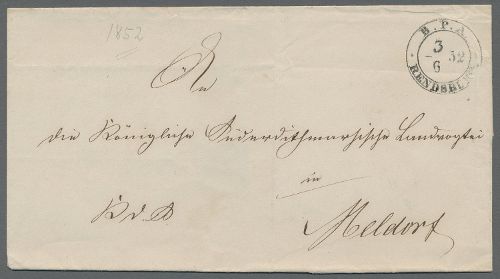 1852
B. P. A.
3
6
52
RENDSBURG
An
die Königliche Süderdithmarsische Landvogtei
in
Meldorf